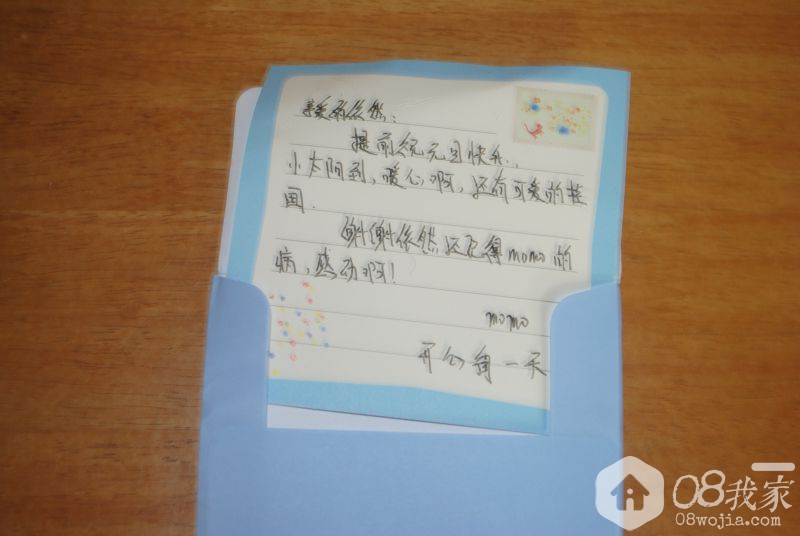 亲爱的依然：
提前祝元旦快乐，
小太阳到，暖心啊，还有可爱的桂
圆.
谢谢依然还记得momo的
病，感动啊！
momo
开心每一天
08我家
08wojia.com